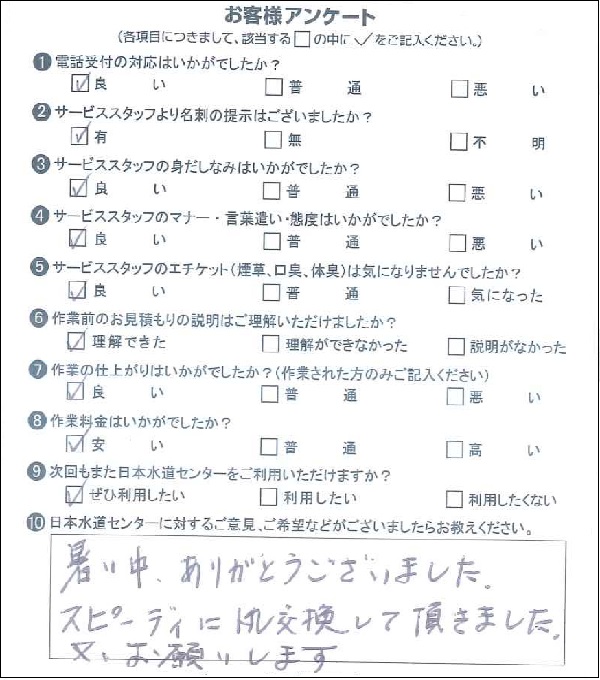 お客様アンケート
(各項目につきまして、該当する□の中に✓をご記入ください。)
❶ 電話受付の対応はいかがでしたか?
☑良い □普通 □悪い
❷ サービススタッフより名刺の提示はございましたか?
☑有 □無 □不明
❸ サービススタッフの身だしなみはいかがでしたか?
☑良い □普通 □悪い
❹ サービススタッフのマナー・言葉遣い・態度はいかがでしたか?
☑良い □普通 □悪い
❺ サービススタッフのエチケット(煙草、口臭、体臭)は気になりませんでしたか?
☑良い □普通 □気になった
❻ 作業前のお見積もりの説明はご理解いただけましたか?
☑理解できた □理解ができなかった □説明がなかった
❼ 作業の仕上がりはいかがでしたか?(作業された方のみご記入ください)
☑良い □普通 □悪い
❽ 作業料金はいかがでしたか?
☑安い □普通 □高い
❾ 次回もまた日本水道センターをご利用いただけますか?
☑ぜひ利用したい □利用したい □利用したくない
❿ 日本水道センターに対するご意見、ご希望などがございましたらお教えください。
暑い中、ありがとうございました。
スピーディに 交換して頂きました。
又、お願いします